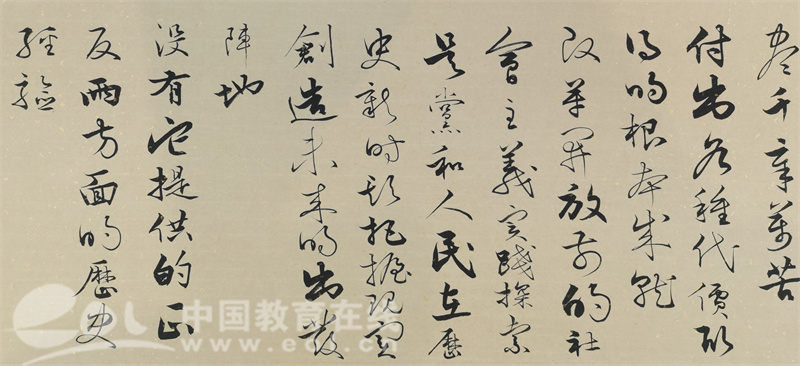 盡千辛萬苦
付出各種代價取
得的根本成就
改革開放前的社
會主義實踐探索
是黨和人民在歷
史新時期把握現實
創造未來的出發
陣地
沒有它提供的正
反兩方面的歷史
經驗
eol 中国教育在线
www.eol.cn